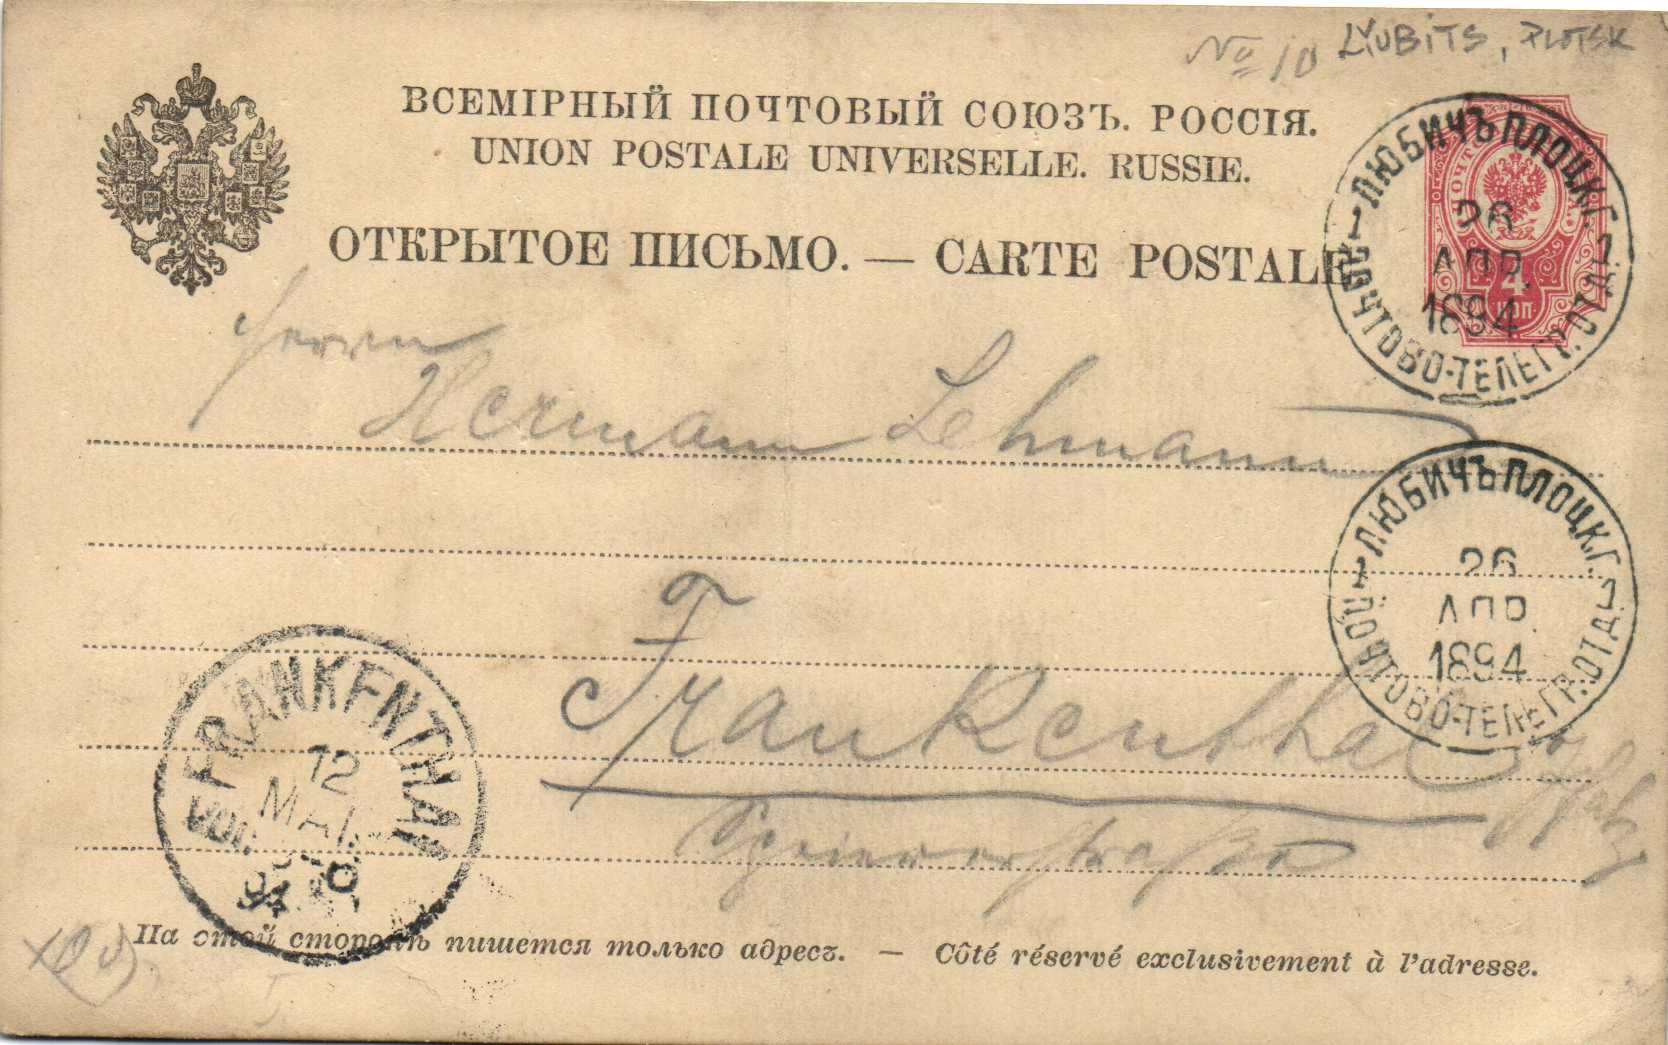 No 10 LYUBITS, PLOTSK
ВСЕМІРНЫЙ ПОЧТОВЫЙ СОЮЗЪ. РОССІЯ.
UNION POSTALE UNIVERSELLE. RUSSIE.
ОТКРЫТОЕ ПИСЬМО. — CARTE POSTALE
4
КОП
ЛЮБИЧЪ ПЛОЦК.Г.
26
АПР.
1894
1 ПОЧТОВО-ТЕЛЕГР.ОТД. 1
Herrn
Hermann Lehmann
ЛЮБИЧЪ ПЛОЦК.Г.
26
АПР.
1894
1 ПОЧТОВО-ТЕЛЕГР.ОТД. 1
Frankenthal Pfalz
FRANKENTHAL
12
MAI.
94
На этой сторонѣ пишется только адресъ. — Côté réservé exclusivement à l'adresse.